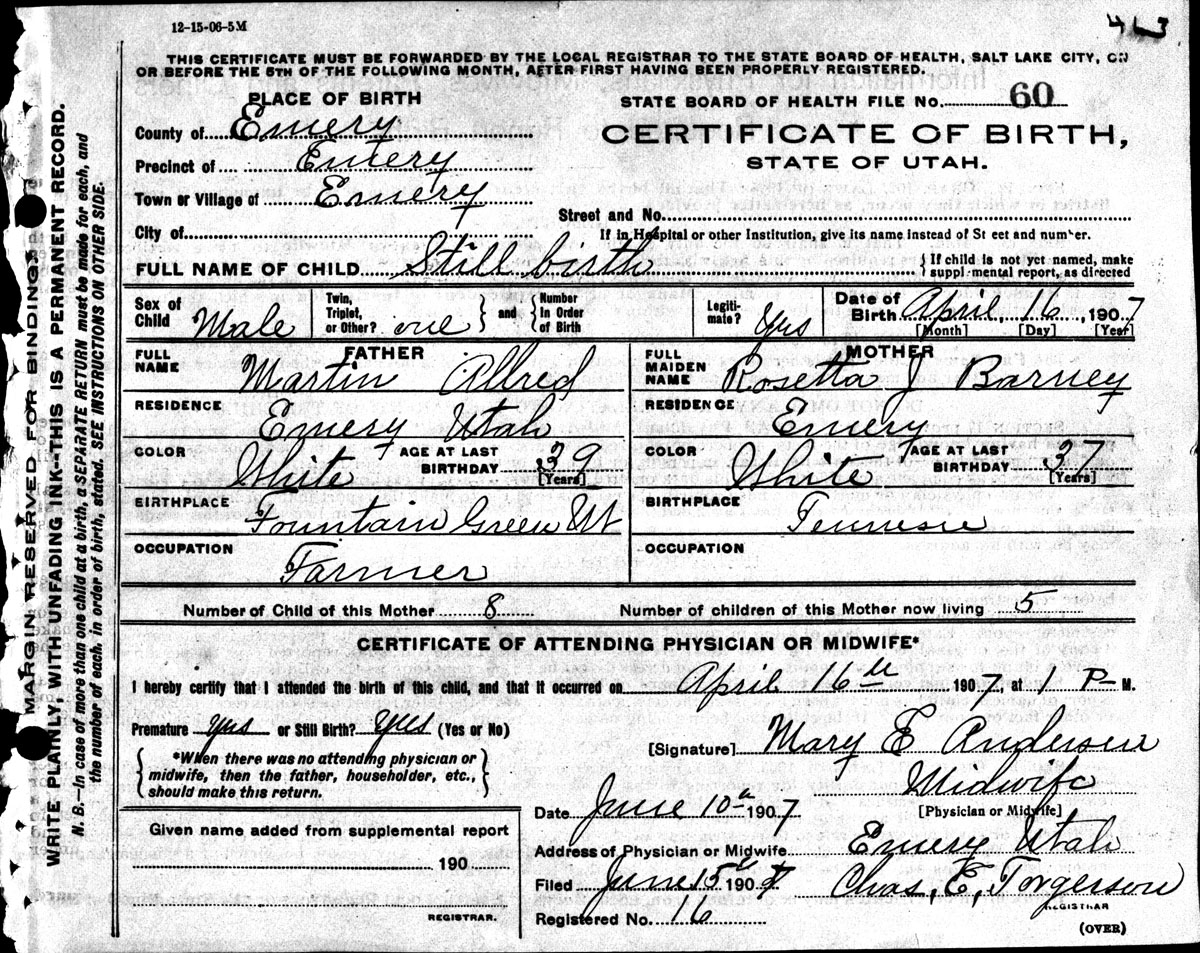 12-15-06-5M
THIS CERTIFICATE MUST BE FORWARDED BY THE LOCAL REGISTRAR TO THE STATE BOARD OF HEALTH, SALT LAKE CITY, ON
OR BEFORE THE 5TH OF THE FOLLOWING MONTH, AFTER FIRST HAVING BEEN PROPERLY REGISTERED.
PLACE OF BIRTH
STATE BOARD OF HEALTH FILE No. 60
County of Emery
CERTIFICATE OF BIRTH,
Precinct of Emery
STATE OF UTAH.
Town or Village of Emery
Street and No.
City of
If in Hospital or other Institution, give its name instead of St eet and number.
FULL NAME OF CHILD Still birth
{ If child is not yet named, make
suppl mental report, as directed
Sex of Child Male
Twin, Triplet, or Other? one } and { Number In Order of Birth
Legiti-mate? Yes
Date of Birth April, 16, 1907
[Month] [Day] [Year]
FATHER
FULL NAME Martin Allred
RESIDENCE Emery Utah
COLOR White AGE AT LAST BIRTHDAY 39
[Years]
BIRTHPLACE Fountain Green Ut
OCCUPATION Farmer
MOTHER
FULL MAIDEN NAME Rosetta J Barney
RESIDENCE Emery
COLOR White AGE AT LAST BIRTHDAY 37
[Years]
BIRTHPLACE Tennesie
OCCUPATION
Number of Child of this Mother 8 Number of children of this Mother now living 5
CERTIFICATE OF ATTENDING PHYSICIAN OR MIDWIFE*
I hereby certify that I attended the birth of this child, and that it occurred on April 16th 1907, at 1 P M.
Premature yes or Still Birth? yes (Yes or No)
{ *When there was no attending physician or
midwife, then the father, householder, etc.,
should make this return. }
[Signature] Mary E Andersen
Midwife
[Physician or Midwife]
Date June 10th 1907
Address of Physician or Midwife Emery Utah
Filed June 15th 1907 Chas, E, Torgerson
REGISTRAR
Registered No. 16
(OVER)
Given name added from supplemental report
190
REGISTRAR.
MARGIN RESERVED FOR BINDING.
WRITE PLAINLY, WITH UNFADING INK--THIS IS A PERMANENT RECORD.
N. B.--In case of more than one child at a birth, a SEPARATE RETURN must be made for each, and
the number of each, in order of birth, stated. SEE INSTRUCTIONS ON OTHER SIDE.